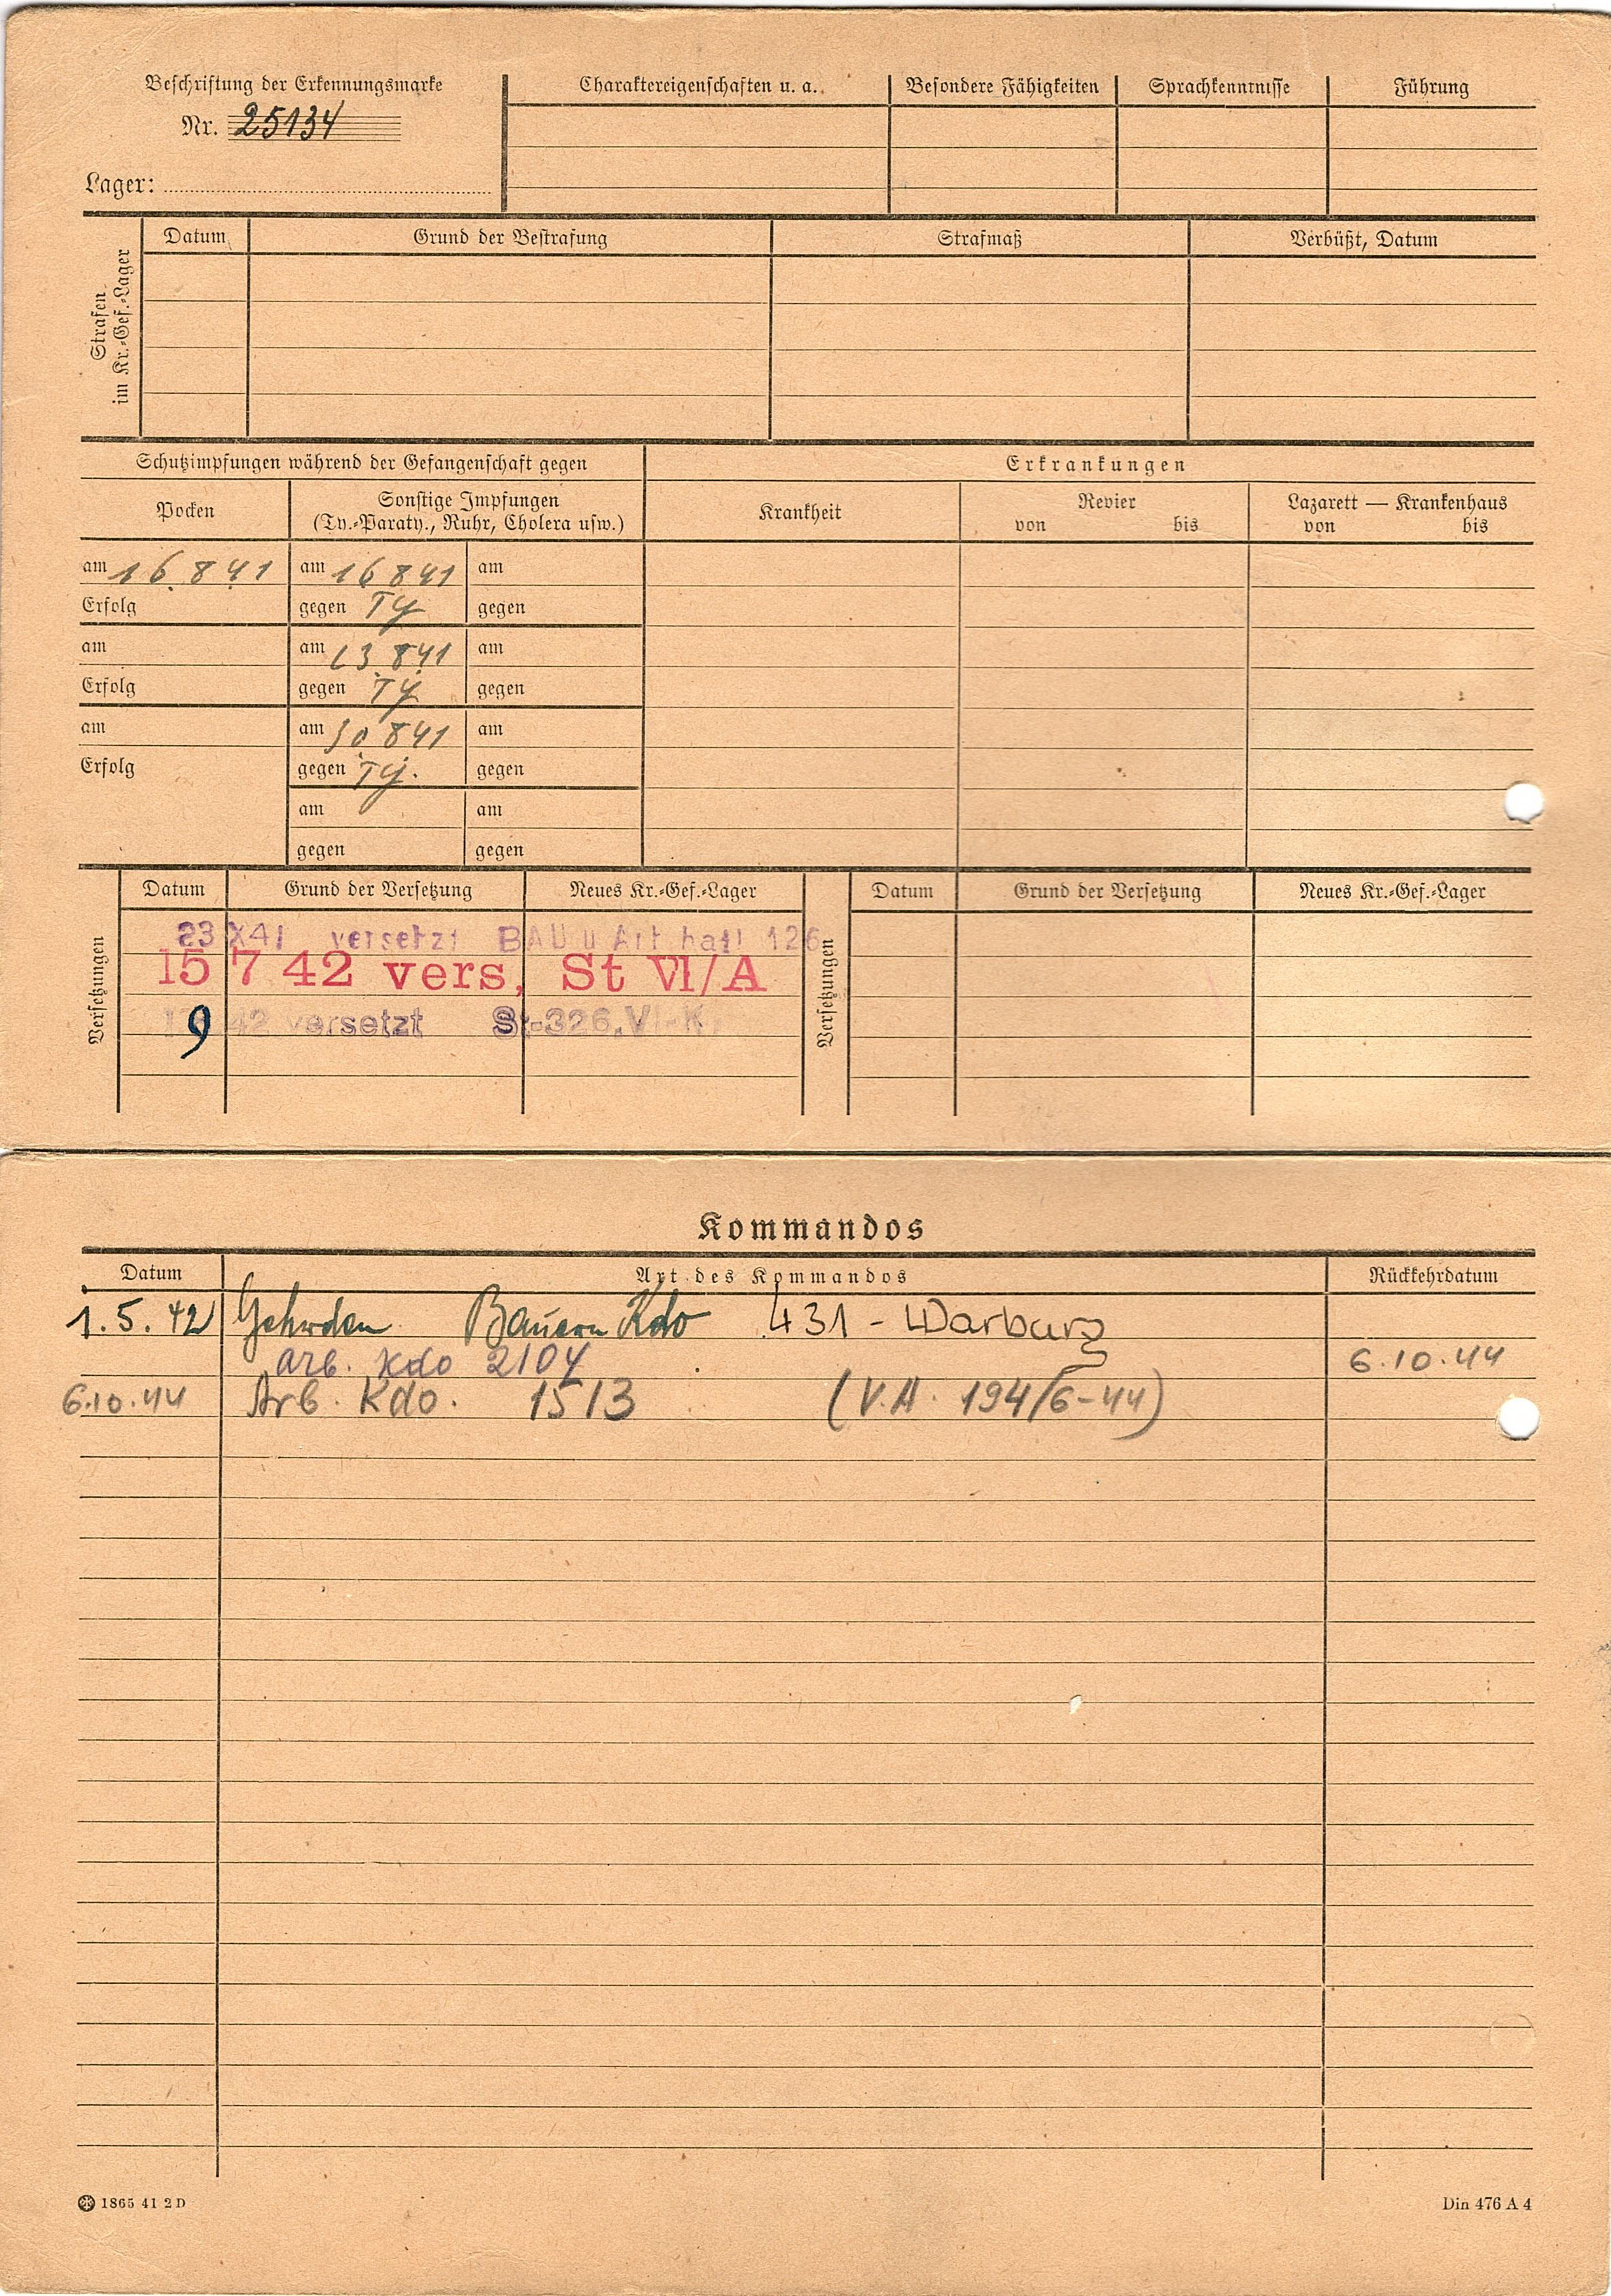 Beschriftung der Erkennungsmarke
Nr. 25134
Lager:
Charaktereigenschaften u. a.
Besondere Fähigkeiten
Sprachkenntnisse
Führung
Strafen
im Kr.-Gef.-Lager
Datum
Grund der Bestrafung
Strafmaß
Verbüßt, Datum
Schutzimpfungen während der Gefangenschaft gegen
Erkrankungen
Pocken
Sonstige Impfungen
(Ty.-Paraty., Ruhr, Cholera usw.)
Krankheit
Revier
von bis
Lazarett — Krankenhaus
von bis
am 16.8.41 am 16 8 41 am
Erfolg gegen Ty gegen
am am 23.8.41 am
Erfolg gegen Ty gegen
am am 30.8.41 am
Erfolg gegen Ty. gegen
am am
gegen gegen
Versetzungen
Datum Grund der Versetzung Neues Kr.-Gef.-Lager
23 X41 versetzt BAU u Art batl 126
15 7 42 vers, St VI/A
9 42 versetzt St-326.VI-K
Versetzungen
Datum Grund der Versetzung Neues Kr.-Gef.-Lager
Kommandos
Datum Art des Kommandos Rückkehrdatum
1.5.42 Gehrden Bauern Kdo 431 - Warburg
arb. Kdo 2104 6.10.44
6.10.44 Arb. Kdo. 1513 (V.A. 194/6-44)
1865 41 2 D
Din 476 A 4